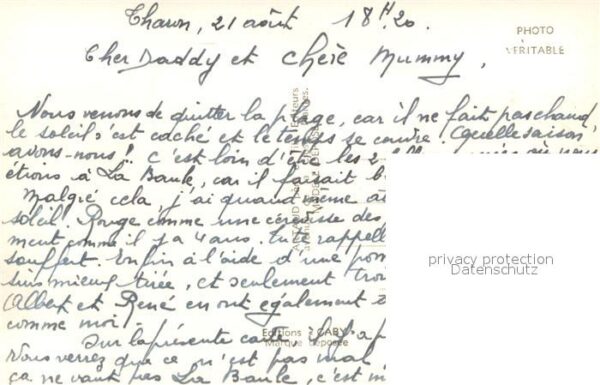 Tharon, 21 août 18 H 20.
PHOTO
VÉRITABLE
Cher Daddy et chère Mummy,
Nous venons de quitter la plage, car il ne fait pas chaud
le soleil s'est caché et le temps se couvre. Quelle saison
avons-nous!! c'est loin d'être les 2
étions à La Baule, car il faisait b
Malgré cela, j'ai quand même
soleil. Rouge comme une écrevisse des
ment comme il y a 4 ans. te rappell
souffert. Enfin à l'aide d'une pom
suis mieux tirée, et seulement
Albert et René en ont également
comme moi.
Sur la présente carte,
Vous verrez que ce n'est pas mal
ça ne vaut pas La Baule, c'est
Editions GABY
Marque déposée
privacy protection
Datenschutz